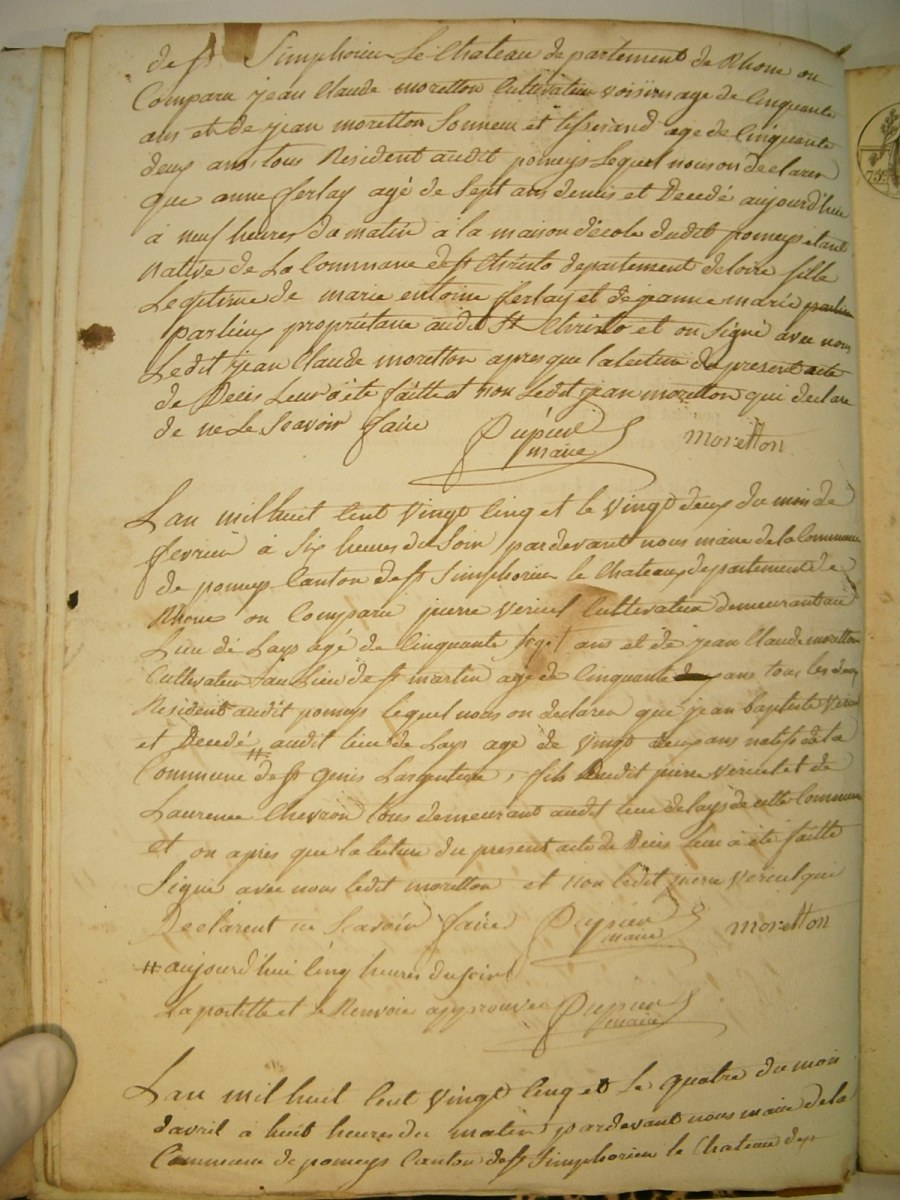 de St Simphorien Le Chateau departement de Rhone on
Comparu jean Claude moretton Cultivateur voissins age de Cinquante
ans et de jean moretton Sonneur et tisserand age de Cinquante
deux ans tous Resident audit pomeys Lequel nous on declarer
que anne ferlay agé de Sept ans demis et Decedé aujourd'huie
à neuf heures du matin à la maison d'école dudit pomeys étant
Native de La Commune de St Christo departement de loire fille
Legitime de marie entoine ferlay et de jeanne marie
parlieu propriétaire audit St Christo et on Signé avec nous
Ledit jean Claude moretton apres que la lecture du present acte
de Deces Leur à été faitte et non Ledit jean moretton qui declare
de ne Le Scavoir faire Pupier maire moretton
Lan mil huit Cent Vingt Cinq et le Vingt deux du mois de
fevrier à Six heures du Soir pardevant nous maire de la Commune
de pomeys Canton de St Simphorien le Chateau departement de
Rhone on Comparu pierre vericel Cultivateur demeurant au
Lieu de Lays agé de Cinquante sept ans et de jean Claude moretton
Cultivateur au Lieu de St martin age de Cinquante ans tous les deux
Resident audit pomeys lequel nous on declarer que jean baptiste Vericel
et Decedé audit lieu de Lays age de Vingt deux ans natifs de la
Commune # de St Genis Largentiere, fils Dudit pierre vericel et de
Laurence Chevron tous demeurant audit lieu de lays de cette Commune
et on apres que la lecture du present acte de Deces leur à été faitte
Signe avec nous ledit moretton et non ledit pierre vericel qui
Declarent ne Scavoir faire Pupier maire moretton
# aujourd'hui Cinq heures du Soir
La postille et le Renvoie approuvee Pupier maire
Lan mil huit Cent Vingt Cinq et Le quatre du mois
davril à huit heures du matin pardevant nous maire de la
Commune de pomeys Canton de St Simphorien le Chateau dept